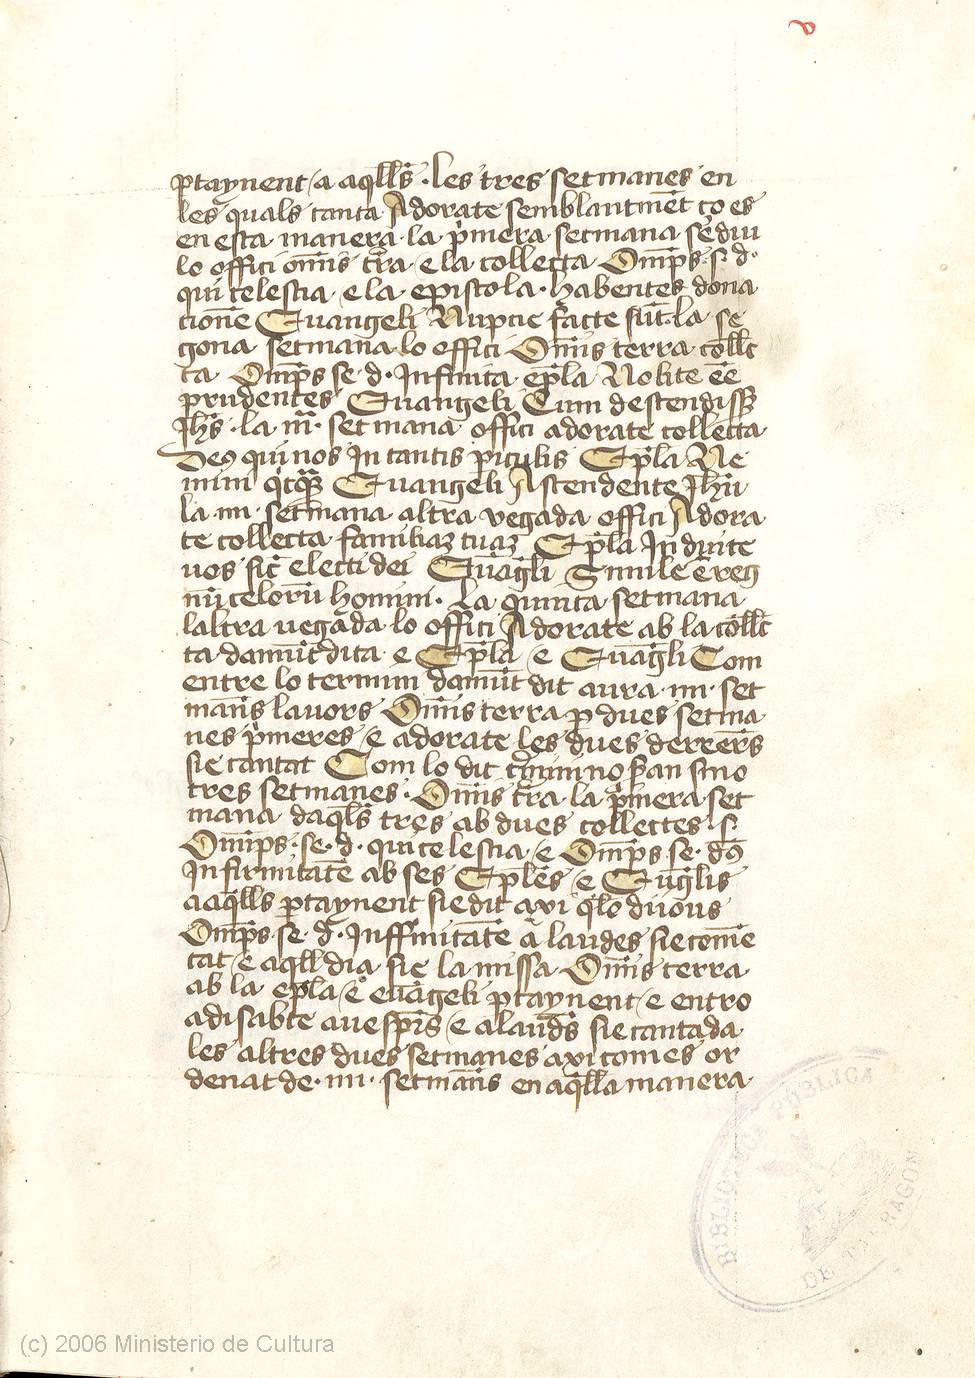 ꝑtaynent / a aq̃lls̃ · les tres setmanes en
les quals canta Adorate semblantmẽt ço es
en esta manera · la pͥmera setmana sẽ diu
lo offici om̃is tr̃a · e la collecta Om̃ps · s · d ·
qui celestia · e la epistola · habentes dona
cionẽ Euangeli Nupcie facte sũt · la se
gona setmana lo offici Om̃is terra · coll̃c
ta · Om̃ps se · d · Infinita ep̃la Nolite eẽ
prudentes Euangeli Cum descendiss̃
Jhs̃ · la iii · setmana offici adorate collecta
Deꝰ qui nos in tantis ꝑiculis Ep̃la Ne
mini qͥcq̃ Euangeli Ascendente Jhũ
la iiii · setmana altra vegada offici Adora
te collecta familiaꝫ tuaꝫ Ep̃la Induite
uos sic̃ electi dei Euãgli Simile ẽ reg
nũ celorũ homini · La quinta setmana
laltra uegada lo offici Adorate ab la coll̃c
ta damũt dita · e Ep̃la / e Euãgli Com
entre lo termini damũt dit aura · iiii · set
mañs lauors Om̃is terra ꝑ dues setma
nes pͥmeres / e adorate les dues derrers̃
sie cantat Com lo dit t̃mini no ꝑan sino
tres setmanes · Om̃is tr̃a la pͥmera set
mana daq̃ls̃ tres ab dues collectes · s ·
Om̃ps · se · d · qui celestia / e Om̃ps · se · dꝰ
Infirmitatẽ ab ses Ep̃les / e Eũglis
a aq̃lls ꝑtaynent sie dit axi q̃ lo diuous
Om̃ps · se · d · Inffirmitatẽ a laudes sie comẽ
cat / e aq̃ll dia sie la missa Om̃is terra
ab la ep̃la / e euãgeli ꝑtaynent / e entro
a disabte a uesprs̃ / e a lauds̃ sie cantada
les altres dues setmanes axi com es or
denat de · iiii · setmañs en aq̃lla manera
BIBLIOTECA PÚBLICA
DE TARRAGONA
(c) 2006 Ministerio de Cultura